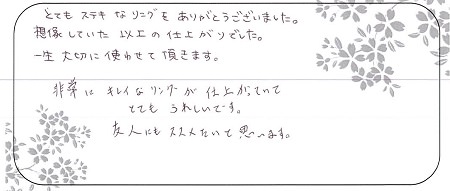 とても ステキ な リングを ありがとうございました。
想像していた 以上の 仕上がりでした。
一生 大切に 使わせて 頂きます。
非常に キレイな リングが 仕上がっていて
とても うれしいです。
友人にも ススメたいと 思います。